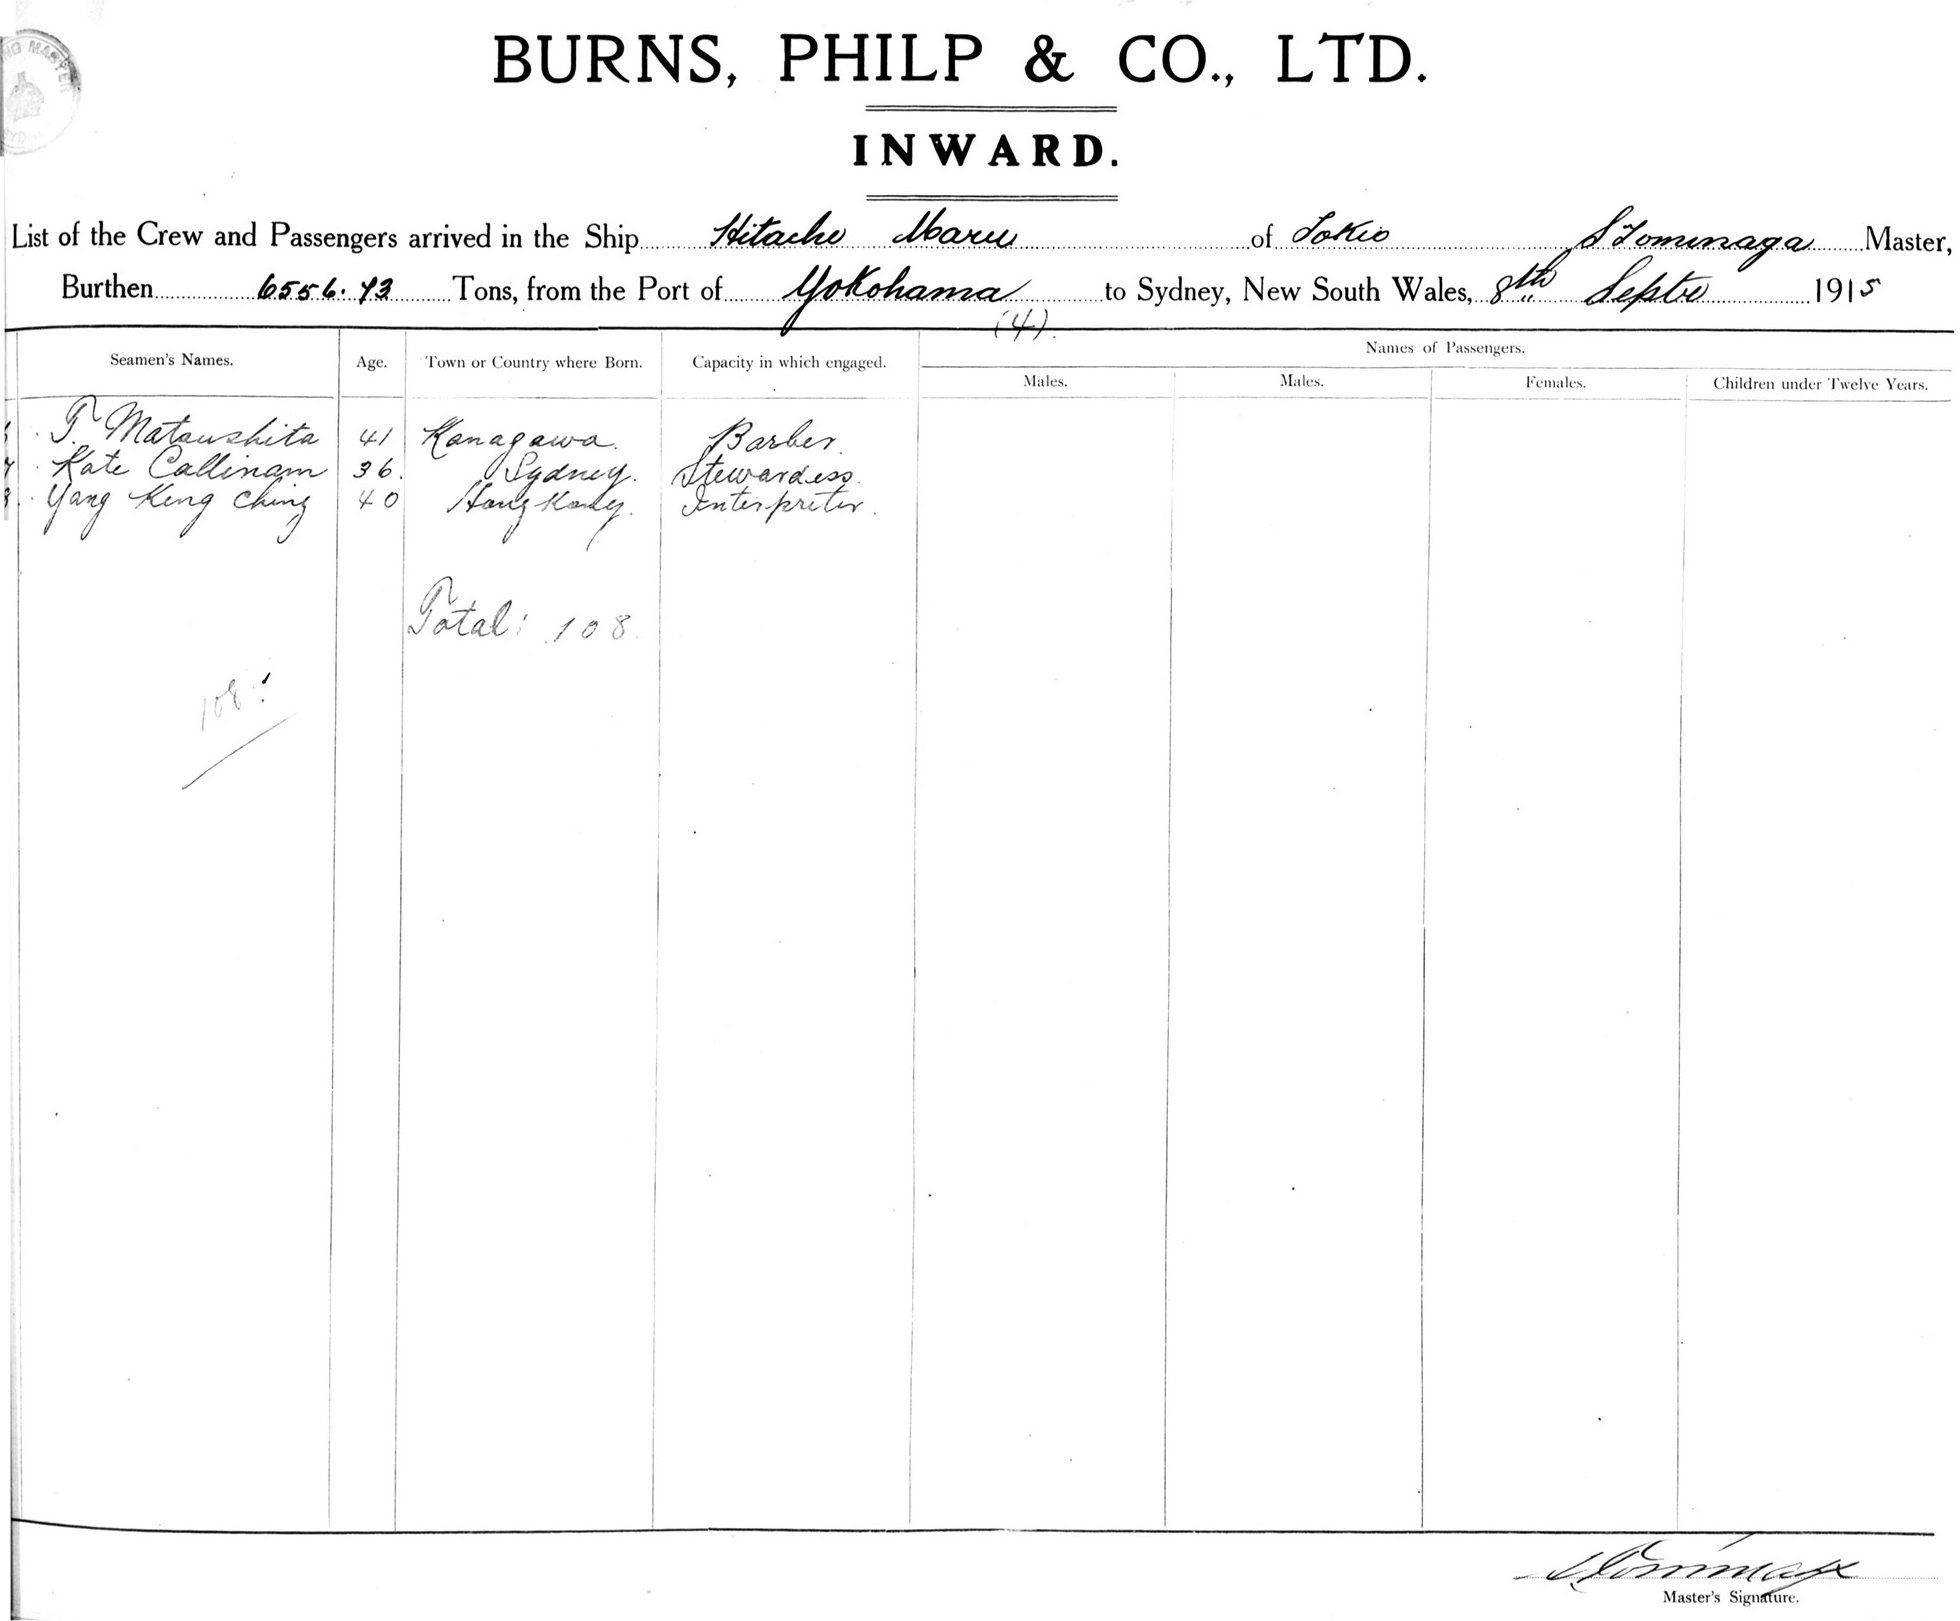 BURNS, PHILP & CO., LTD.
INWARD.
List of the Crew and Passengers arrived in the Ship Hitachi Maru of Tokio S Tominaga Master,
Burthen 6556.43 Tons, from the Port of Yokohama to Sydney, New South Wales, 8th Septr 1915
(4).
Seamen's Names. Age. Town or Country where Born. Capacity in which engaged. Names of Passengers.
Males. Males. Females. Children under Twelve Years.
T. Mataushita 41 Kanagawa. Barber.
Kate Callinam 36. Sydney. Stewardess.
Yang King Ching 40 Hong Kong. Interpreter.
Total: 108
108
S Tominaga
Master's Signature.